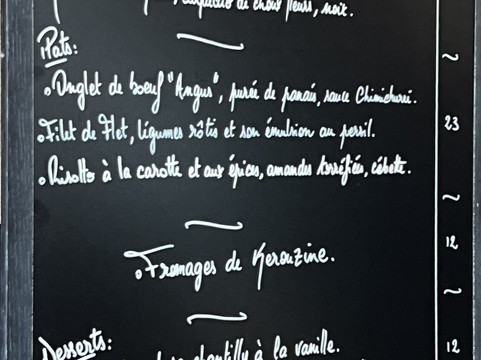 de choux fleurs, noix.
Plats: ~
• Onglet de boeuf "Angus", purée de panais, sauce Chimichurri.
• Filet de Flet, légumes rôtis et son émulsion au persil. 23
• Risotto à la carotte et aux épices, amandes torréfiées, cébette.
~
• Fromages de Kerouzine. 12
~
Desserts:
chantilly à la vanille. 12